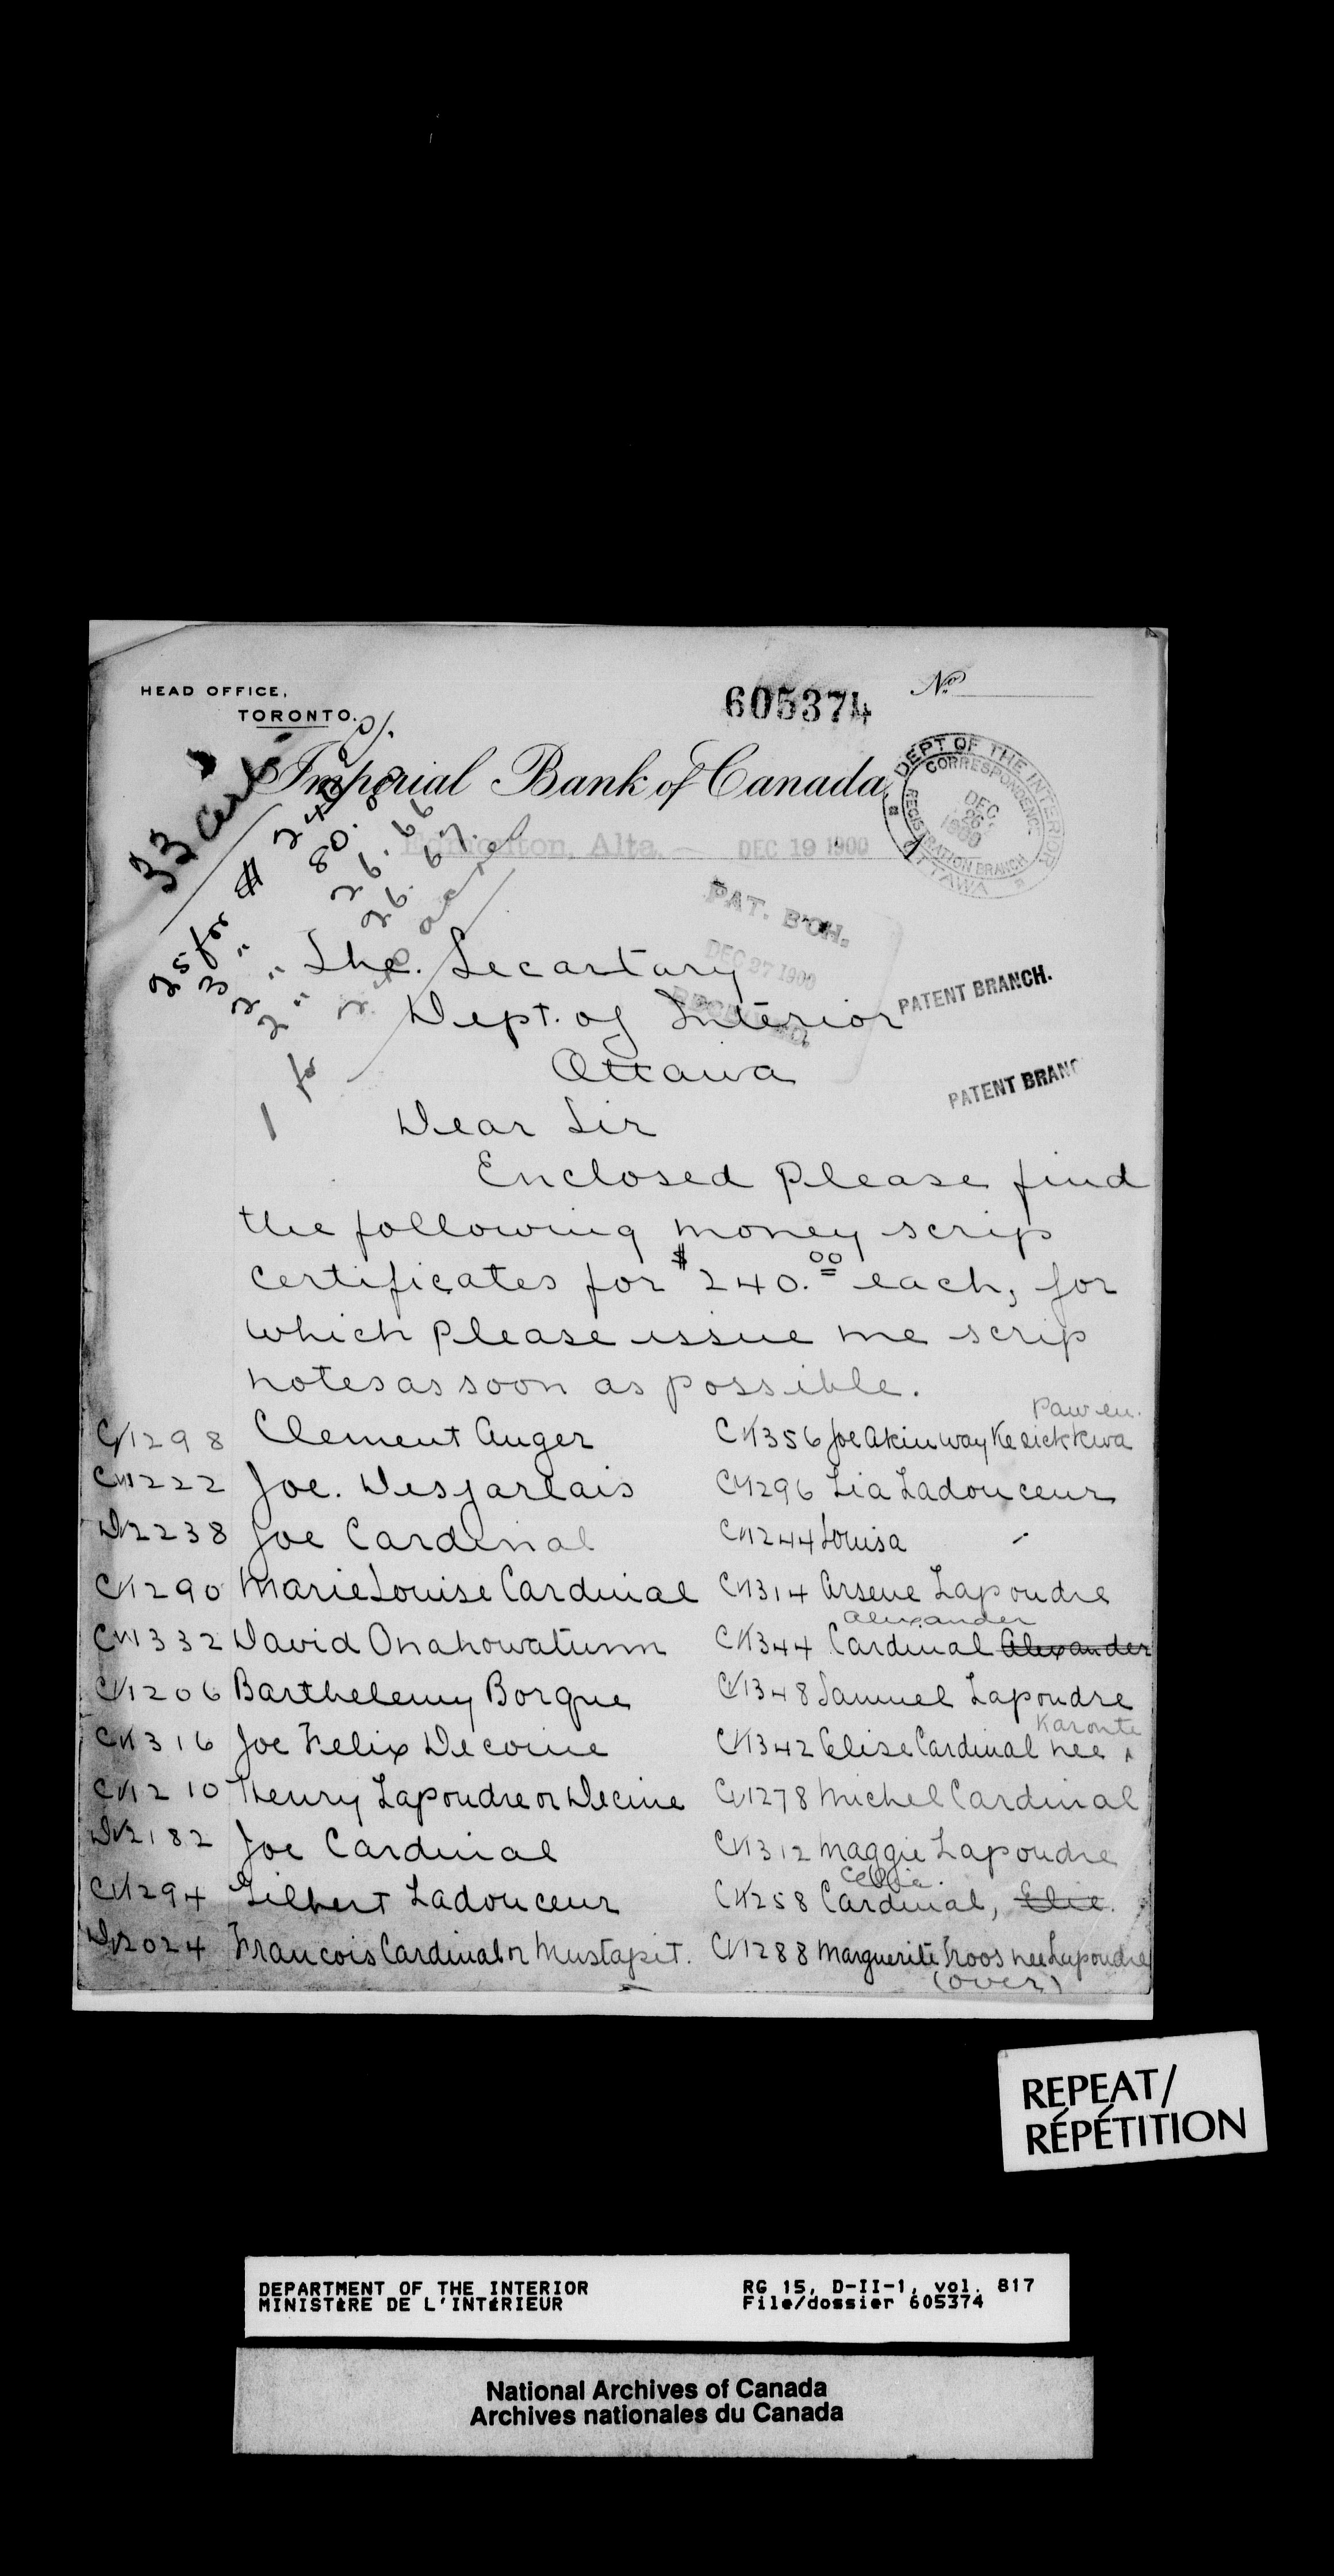 HEAD OFFICE,
TORONTO.
605374
No
Imperial Bank of Canada
Edmonton, Alta. — DEC 19 1900
DEPT OF THE INTERIOR
CORRESPONDENCE
DEC. 26 1900
REGISTRATION BRANCH
OTTAWA
33 certs.
25 for $ 240.
3 " 80.
2 " 26.66
2 " 26.67.
1 for 240 acres
PAT. B'CH.
DEC 27 1900
PATENT BRANCH.
PATENT BRANC
The. Secartary
Dept. of Interior
Ottawa
Dear Sir
Enclosed please find
the following money scrip
certificates for $240.00 each, for
which please issue me scrip
notes as soon as possible.
1298 Clement Auger
1222 Joe. Desjarlais
2238 Joe Cardinal
1290 Marie Louise Cardinal
1332 David Onahowatumn
1206 Barthelemy Borque
316 Joe Felix Decoine
1210 Henry Lapoudre or Decine
2182 Joe Cardinal
1294 Gilbert Ladouceur
2024 Francois Cardinal or Mustapit.
356 Joe Akinway Kesickkwa
1296 Lia Ladouceur
1244 Louisa -
1314 Arsene Lapoudre
Alexander
344 Cardinal Alexander
1348 Samuel Lapoudre
Karonte
1342 Elise Cardinal nee ^
1278 Michel Cardinal
1312 Maggie Lapoudre
258 Cardinal, Elie.
1288 Marguerite Troos nee Lapoudre
(over)
REPEAT/
RÉPÉTITION
DEPARTMENT OF THE INTERIOR
MINISTÈRE DE L'INTÉRIEUR
RG 15, D-II-1, vol. 817
File/dossier 605374
National Archives of Canada
Archives nationales du Canada